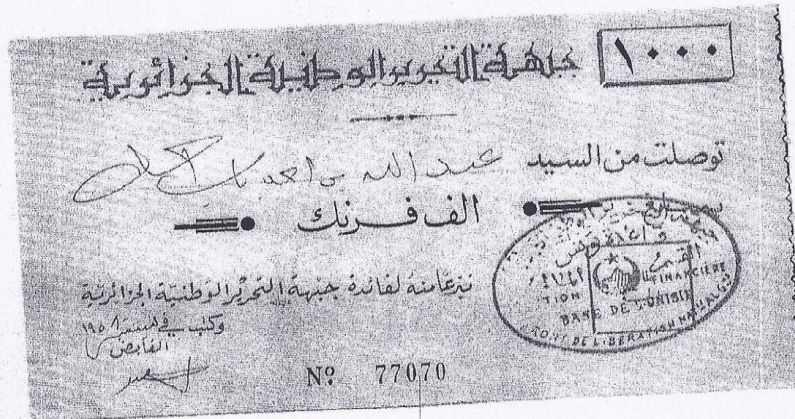 جبهة التحرير الوطنية الجزائرية ١٠٠٠
توصلت من السيد عبد الله بن احمد
الف فرنك
تبرعا منه لفائدة جبهة التحرير الوطنية الجزائرية
وكتب في ١٩٥٨
القابض
FINANCIERE
TION
BASE DE TUNISIE
FRONT DE LIBERATION NATIONALE
Nº 77070